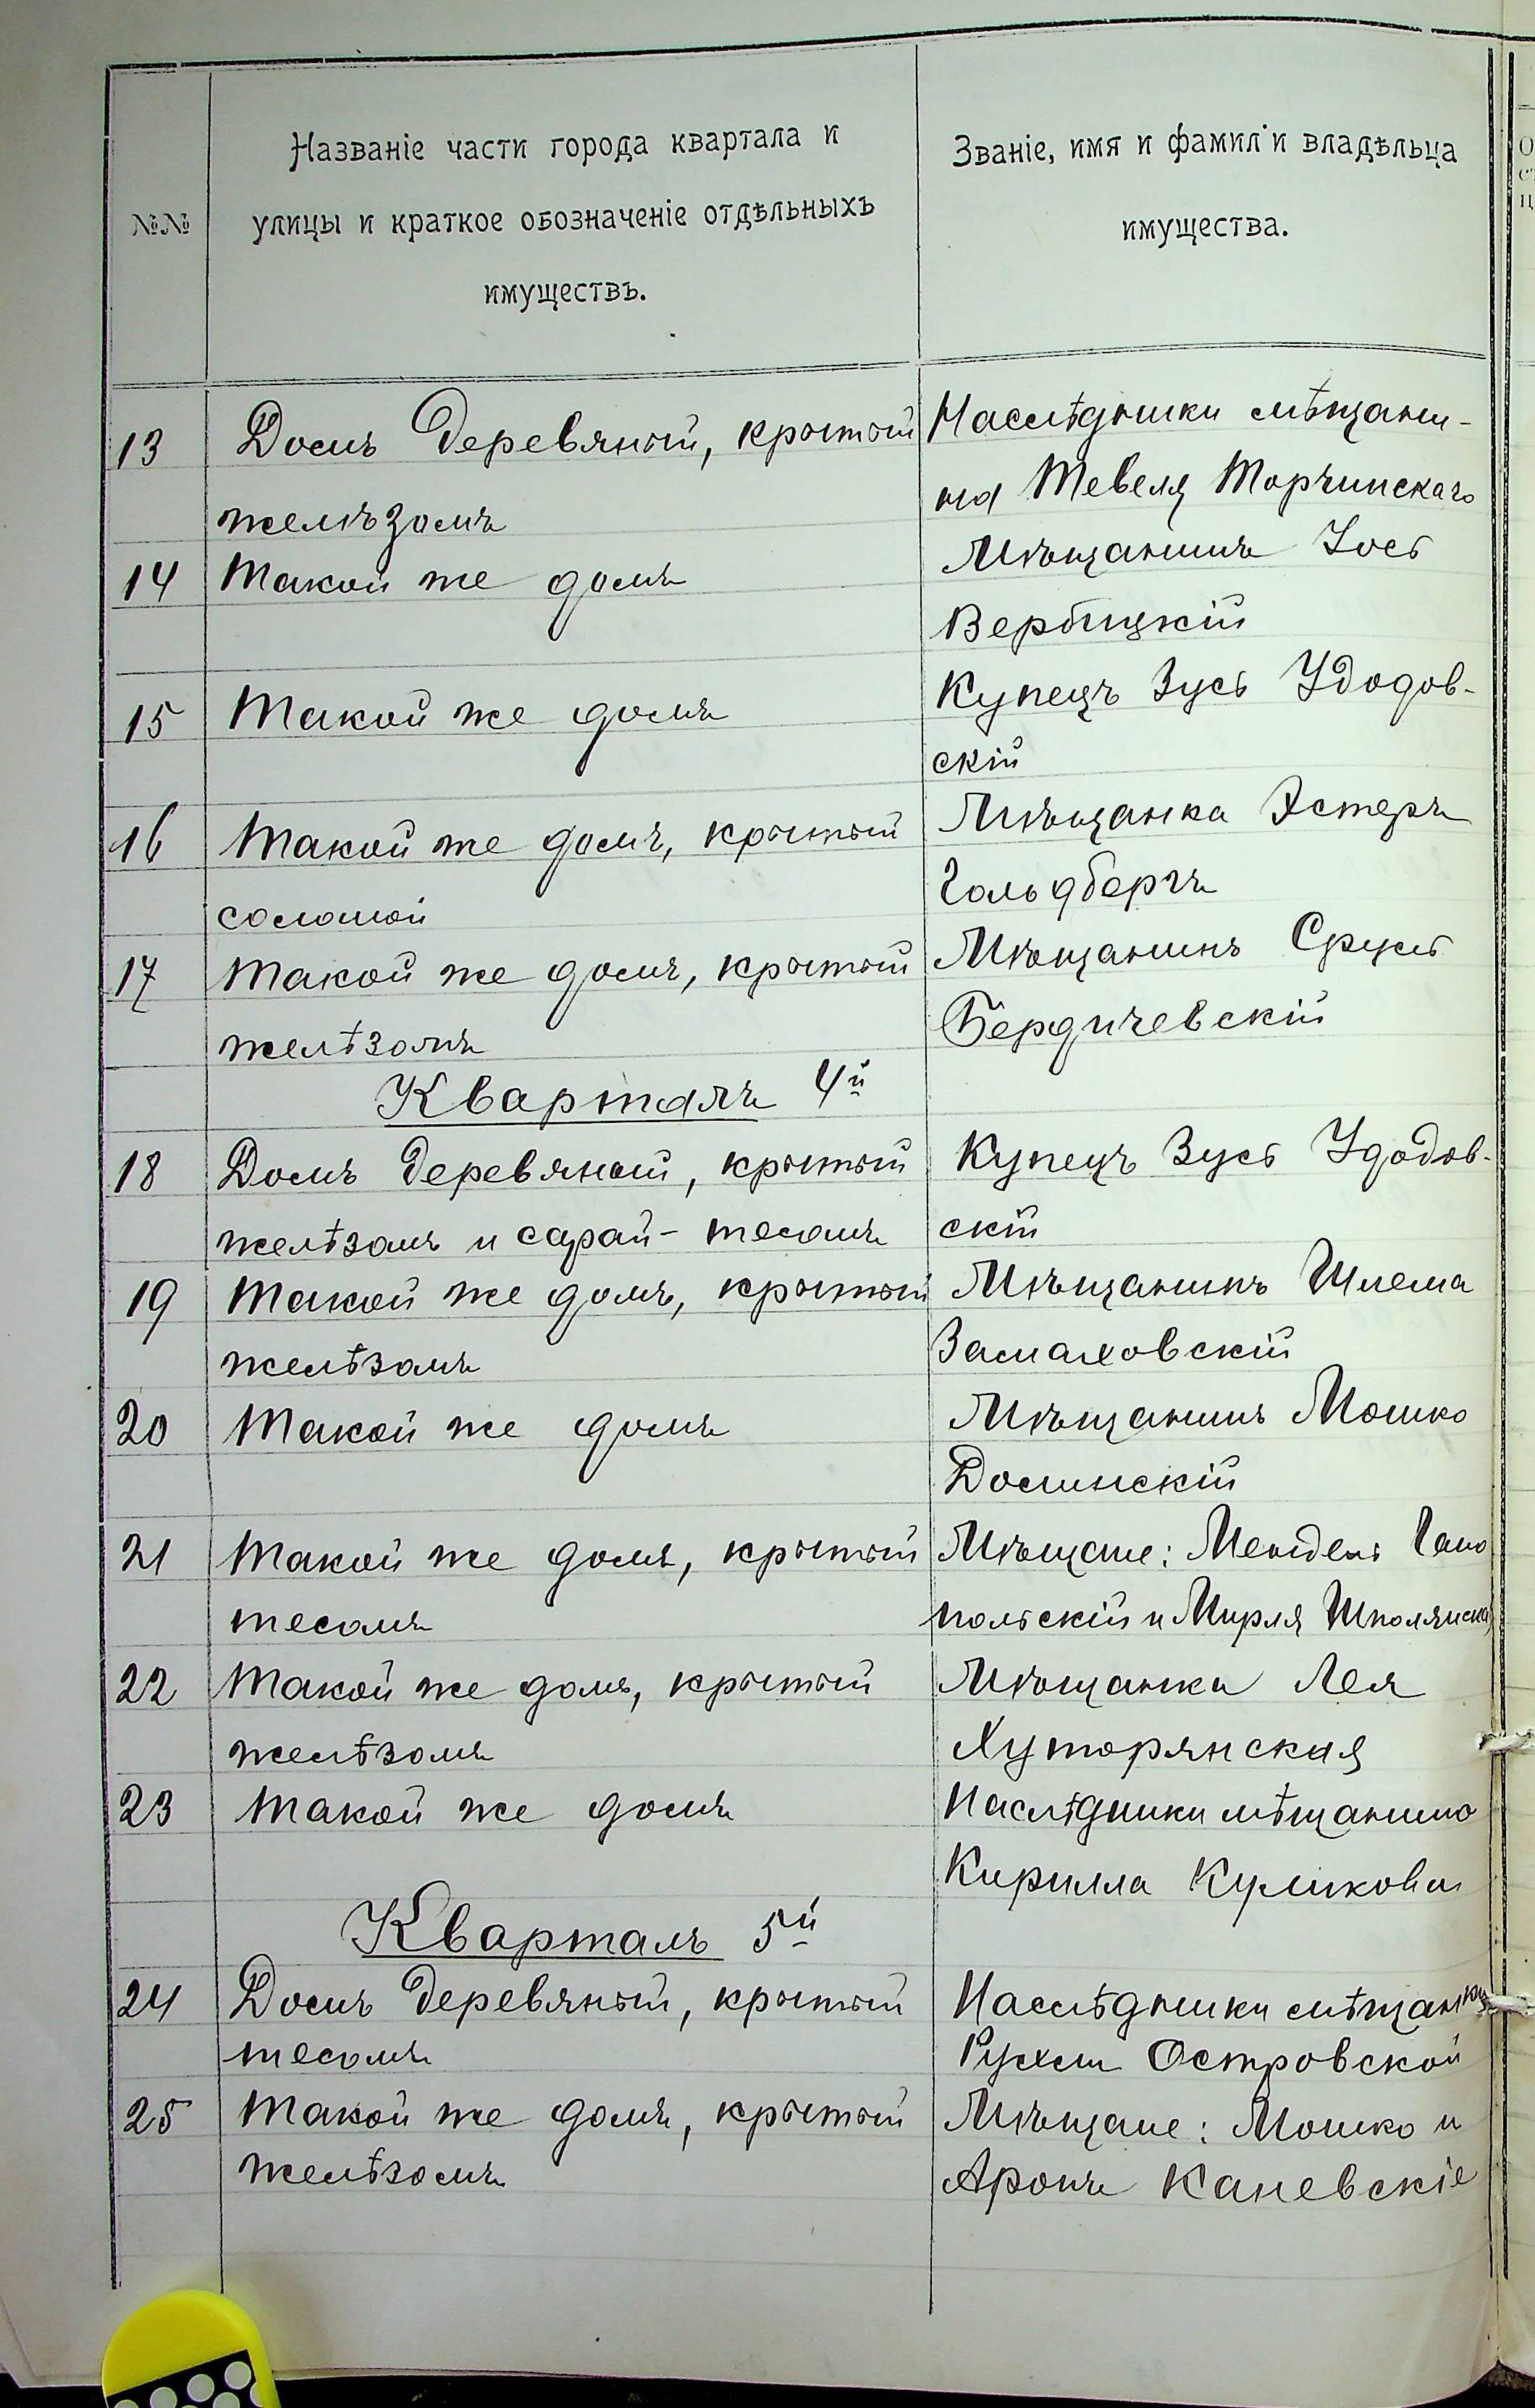 №№
Названіе части города квартала и
улицы и краткое обозначеніе отдѣльныхъ
имуществъ.
Званіе, имя и фамиліи владѣльца
имущества.
13 Домъ деревяный, крытый
желѣзомъ
Наслѣдники мѣщани-
на Тевеля Торчинскаго
14 Такой же домъ
Мѣщанинъ Іось
Вербицкій
15 Такой же домъ
Купецъ Зусь Удодов-
скій
16 Такой же домъ, крытый
соломой
Мѣщанка Эстеръ
Гольдбергъ
17 Такой же домъ, крытый
желѣзомъ
Мѣщанинъ Сруль
Бердичевскій
Кварталъ 4й
18 Домъ деревяный, крытый
желѣзомъ и сарай - тесомъ
Купецъ Зусь Удодов-
скій
19 Такой же домъ, крытый
желѣзомъ
Мѣщанинъ Шлема
Замаховскій
20 Такой же домъ
Мѣщанинъ Мошко
Долинскій
21 Такой же домъ, крытый
тесомъ
Мѣщане: Мендель Гано
польскій и Мирля Шполянская
22 Такой же домъ, крытый
желѣзомъ
Мѣщанка Лея
Хуторянская
23 Такой же домъ
Наслѣдники мѣщанина
Кирилла Куликова
Кварталъ 5й
24 Домъ деревяный, крытый
тесомъ
Наслѣдники мѣщанки
Рухли Островской
25 Такой же домъ, крытый
желѣзомъ
Мѣщане: Мошко и
Аронъ Каневскіе